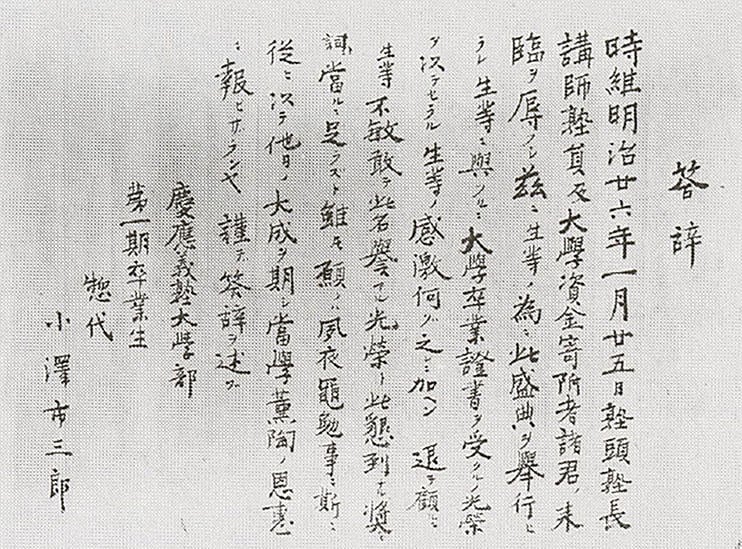 答辞
時維明治廿六年一月廿五日塾頭塾長
講師塾員及大學資金寄附者諸君ノ来
臨ヲ辱ノシ茲ニ生等ノ為ニ此盛典ヲ舉行セ
ラレ生等ニ與フルニ大學卒業證書ヲ受クルノ光榮
ヲ以テセラル生等ノ感激何ゾ之ニ加ヘン退テ顧ミ
生等不敏敢テ此名譽アル光榮ト此懇到ナル奬
詞ニ當ルニ足ラズト雖モ願クハ夙夜黽勉事ニ斯ニ
從ヒ以テ他日ノ大成ヲ期シ當學薫陶ノ恩惠
ニ報ヒザランヤ謹テ答辞ヲ述ブ
慶應義塾大學部
第一期卒業生
惣代
小澤市三郎